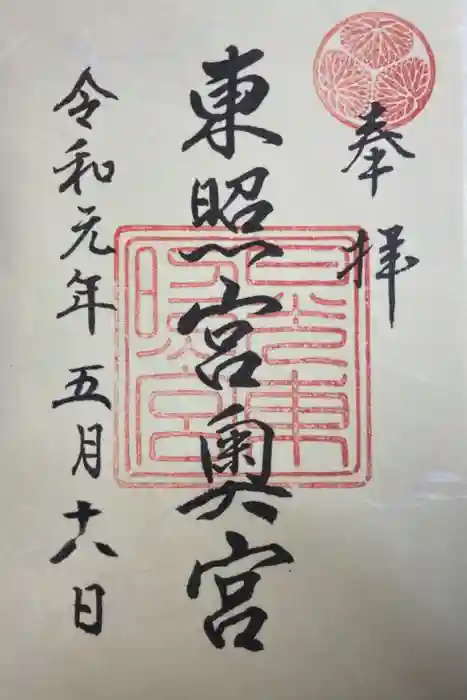 奉拝
東照宮奥宮
令和元年五月十八日
日光東照宮